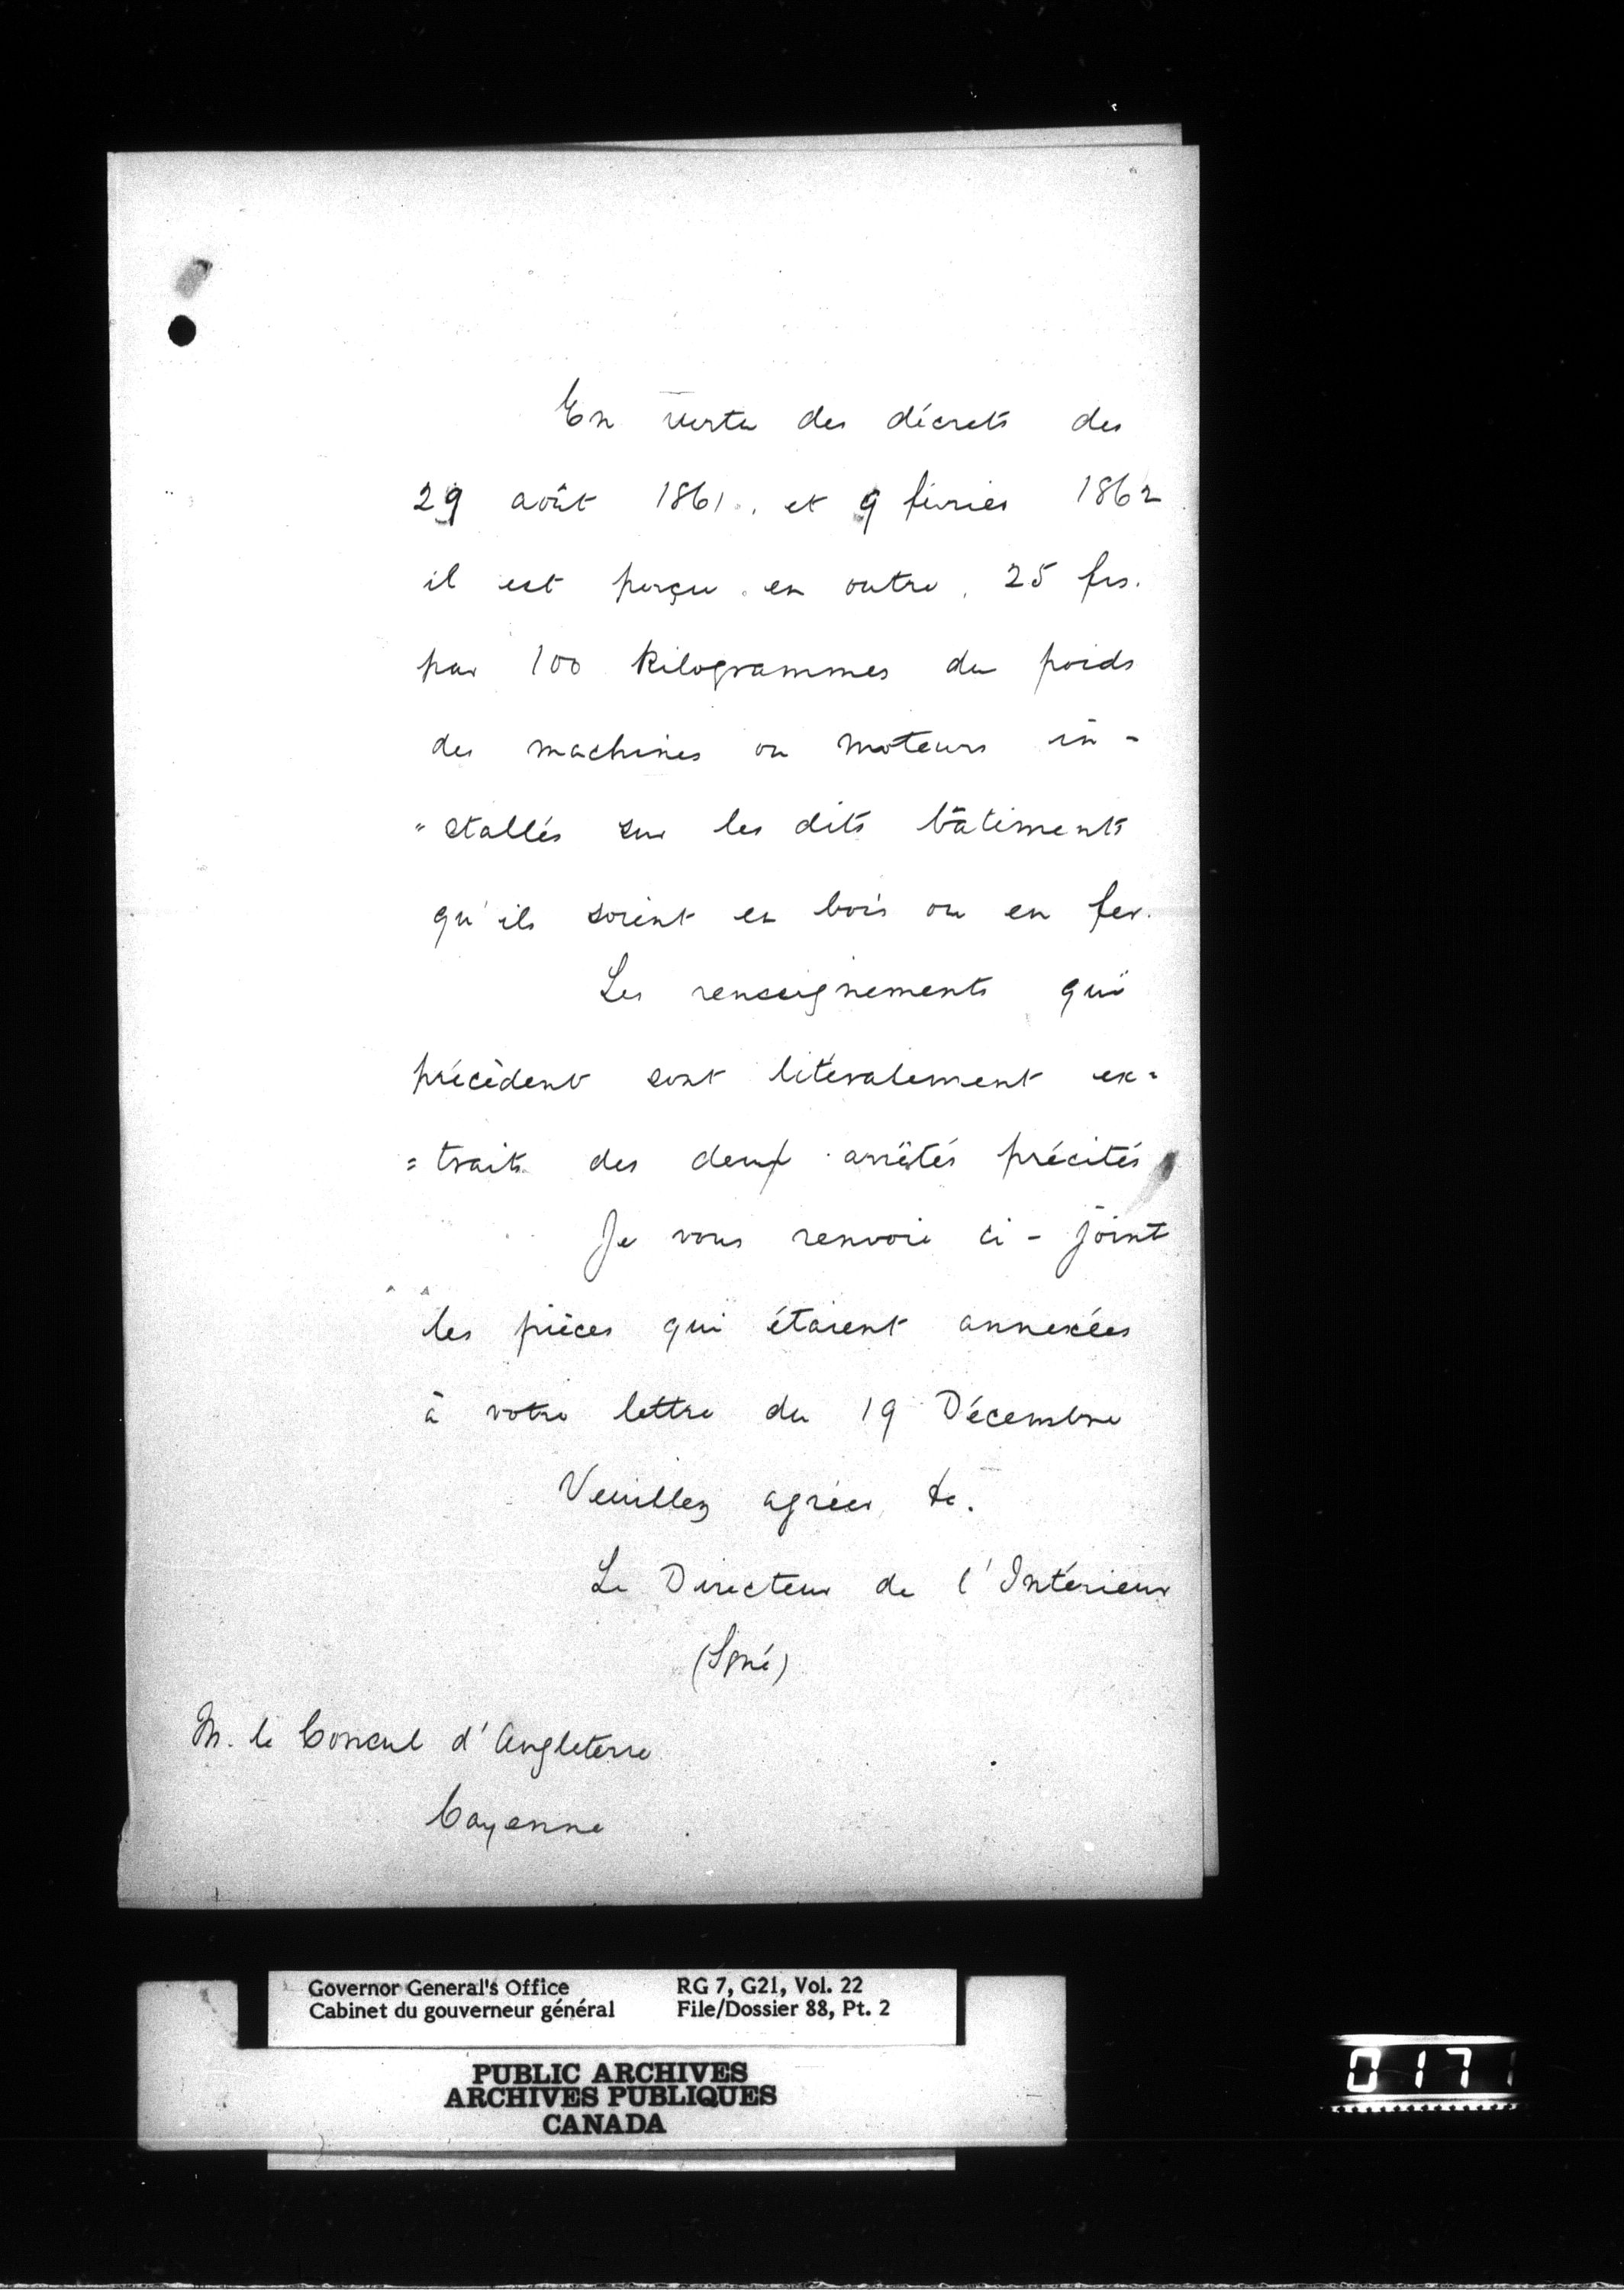 En vertu des décrets des
29 août 1861, et 9 février 1862
il est perçu en outre, 25 frs.
par 100 Kilogrammes du poids
des machines ou moteurs in-
"stallés sur les dits bâtiments
qu'ils soient en bois ou en fer.
Les renseignements qui
précèdent sont litéralement ex=
=traits des deux arrêtés précités
Je vous renvoie ci-joint
les pièces qui étaient annexées
à votre lettre du 19 Décembre
Veuillez agréer, &c.
Le Directeur de l'Intérieur
(Signé)
M. le Consul d'Angleterre
Cayenne
Governor General's Office RG 7, G21, Vol. 22
Cabinet du gouverneur général File/Dossier 88, Pt. 2
PUBLIC ARCHIVES
ARCHIVES PUBLIQUES
CANADA
0171